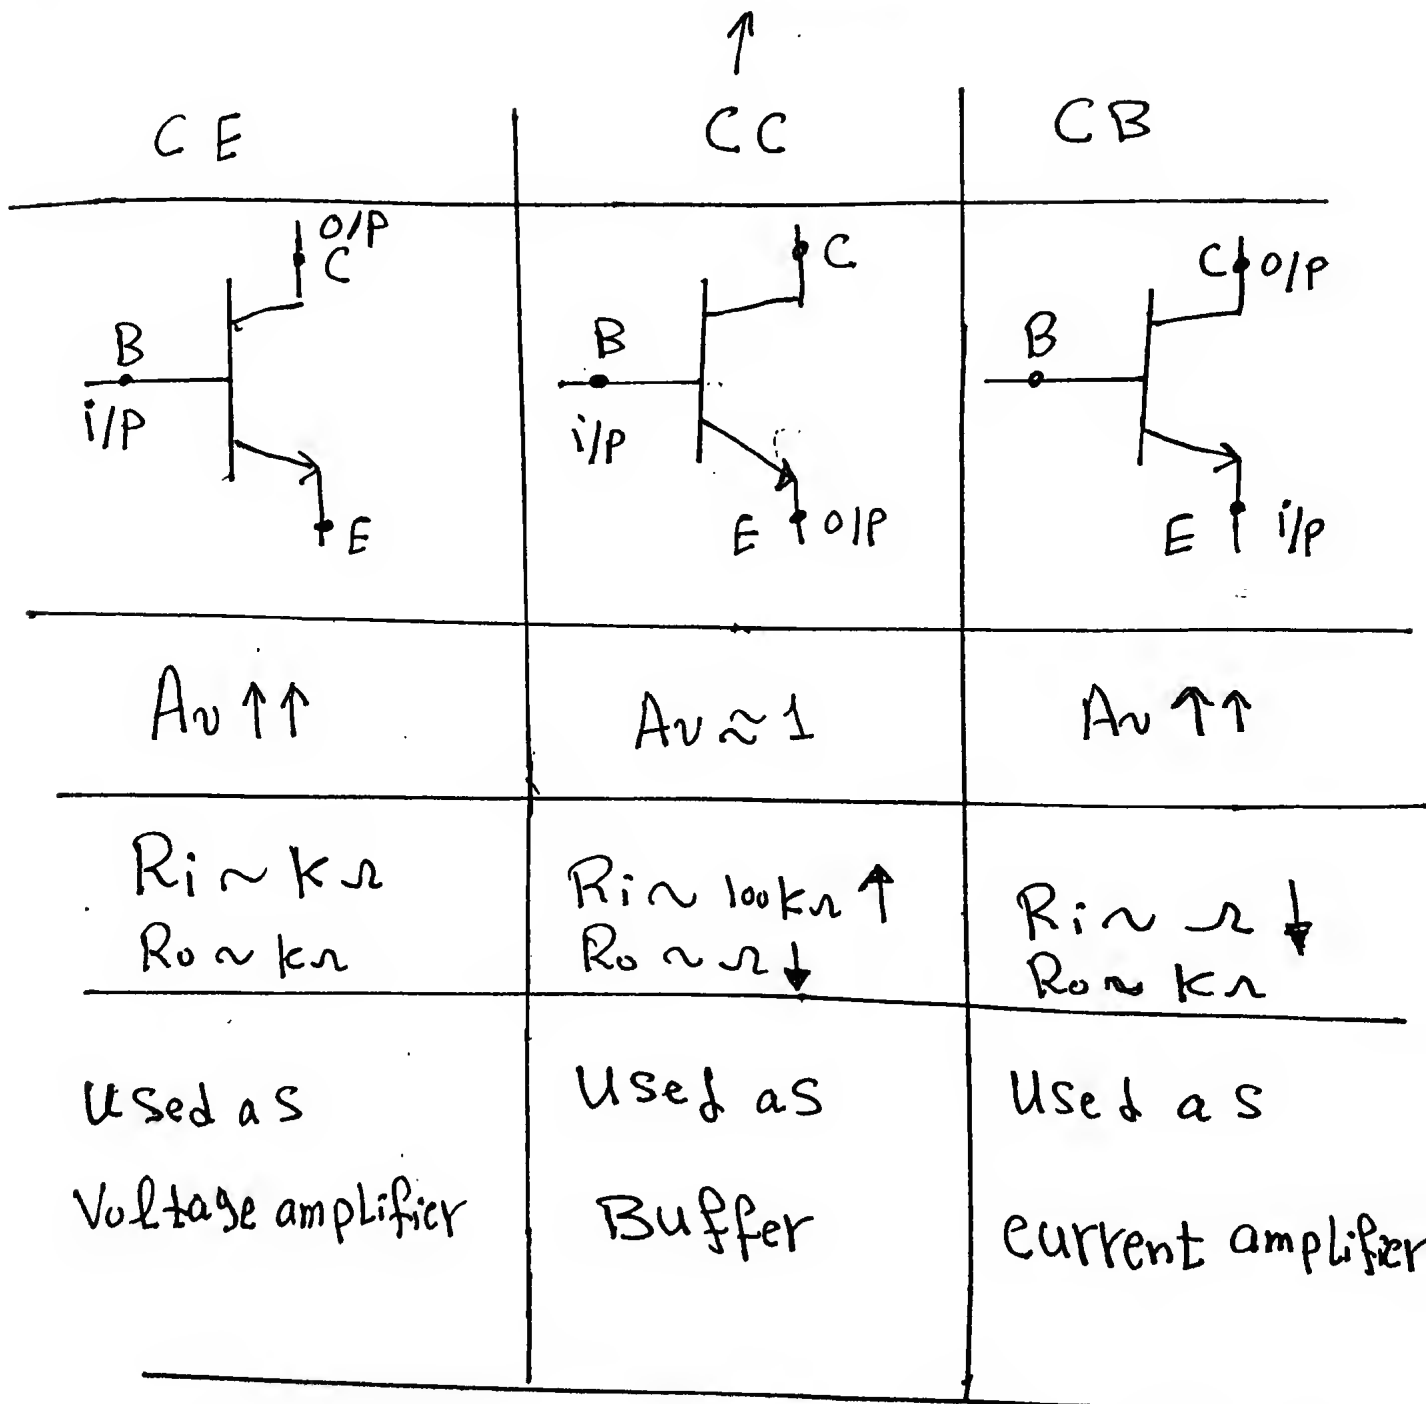 ↑
CE
CC
CB
O/P
C
B
i/P
E
C
B
i/P
E O/P
C O/P
B
E i/P
Av ↑↑
Av ≈ 1
Av ↑↑
Ri ~ KΩ
Ro ~ KΩ
Ri ~ 100KΩ ↑
Ro ~ Ω ↓
Ri ~ Ω ↓
Ro ~ KΩ
Used as
Voltage amplifier
Used as
Buffer
Used as
current amplifier